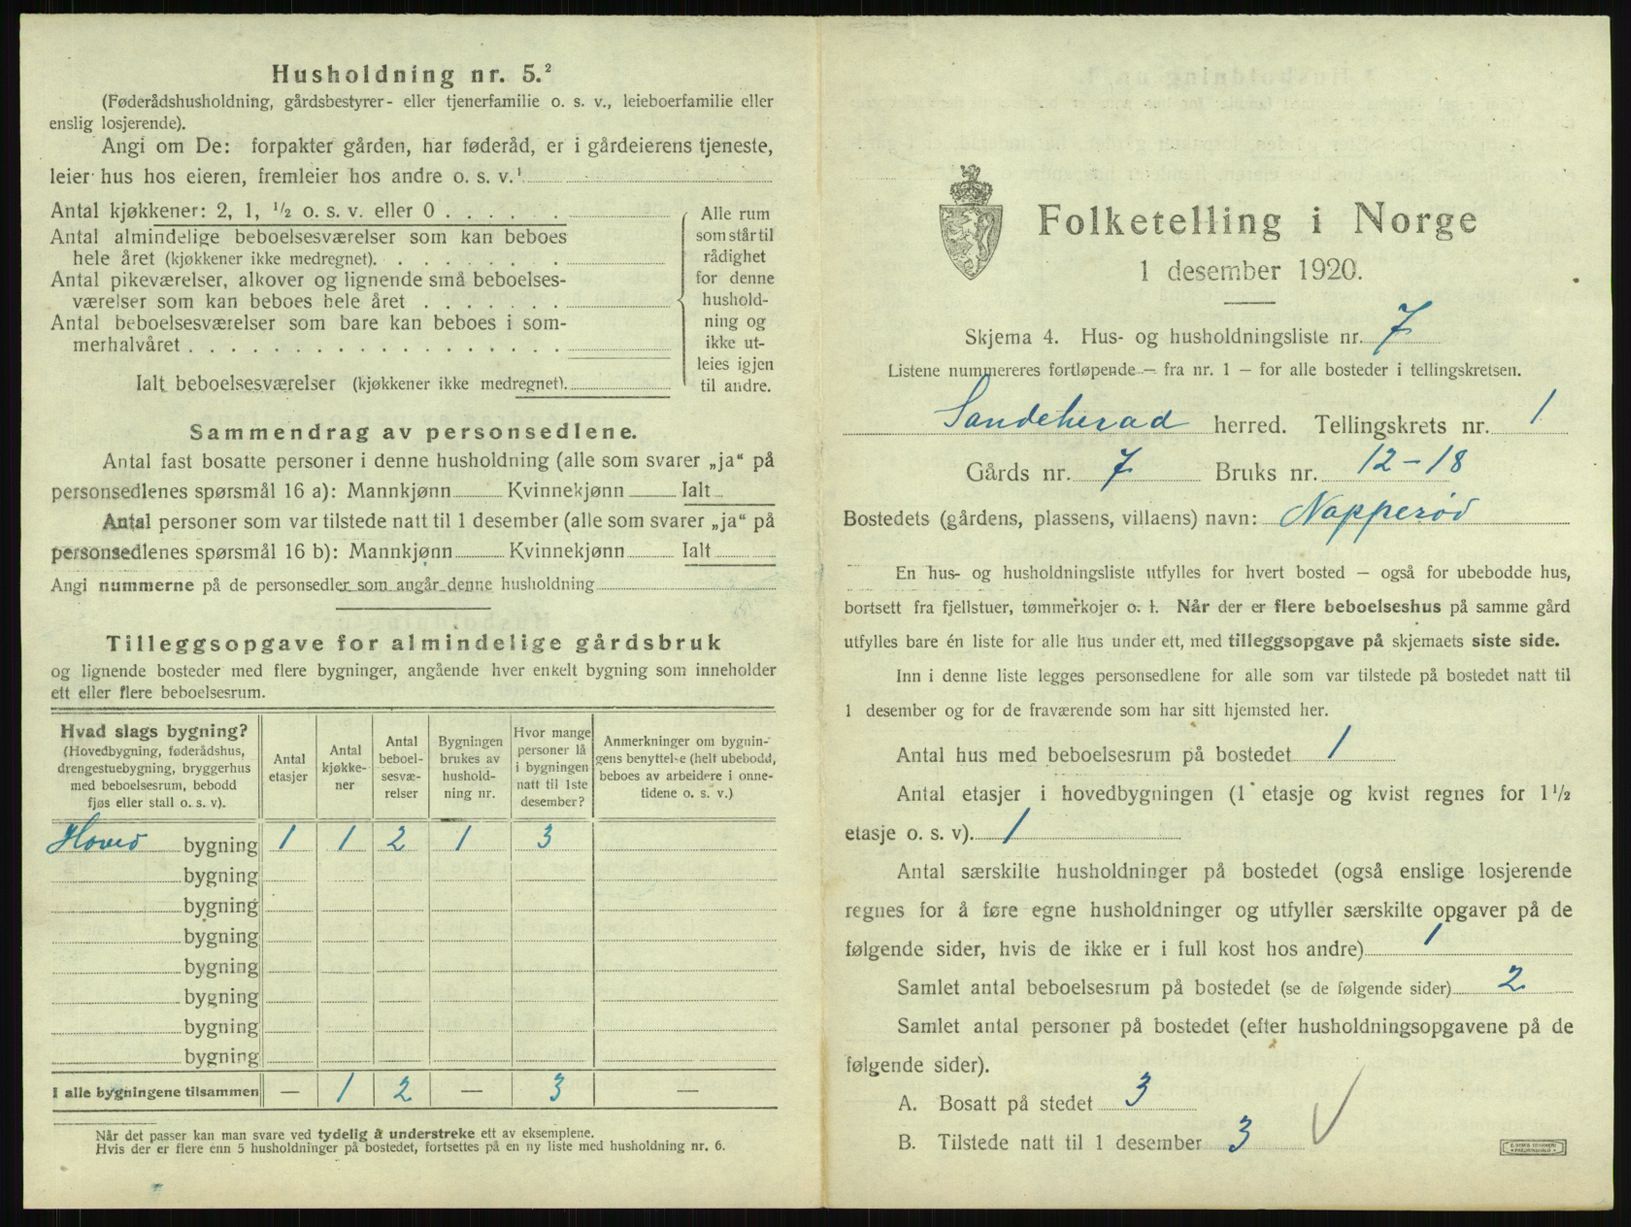 Husholdning nr. 5.²
(Føderådshusholdning, gårdsbestyrer- eller tjenerfamilie o. s. v., leieboerfamilie eller
enslig losjerende).
Angi om De: forpakter gården, har føderåd, er i gårdeierens tjeneste,
leier hus hos eieren, fremleier hos andre o. s. v.¹
Antal kjøkkener: 2, 1, ½ o. s. v. eller 0
Antal almindelige beboelsesværelser som kan beboes
hele året (kjøkkener ikke medregnet).
Antal pikeværelser, alkover og lignende små beboelses-
værelser som kan beboes hele året
Antal beboelsesværelser som bare kan beboes i som-
merhalvåret
Ialt beboelsesværelser (kjøkkener ikke medregnet).
Alle rum
som står til
rådighet
for denne
hushold-
ning og
ikke ut-
leies igjen
til andre.
Sammendrag av personsedlene.
Antal fast bosatte personer i denne husholdning (alle som svarer „ja“ på
personsedlenes spørsmål 16 a): Mannkjønn Kvinnekjønn Ialt
Antal personer som var tilstede natt til 1 desember (alle som svarer „ja“ på
personsedlenes spørsmål 16 b): Mannkjønn Kvinnekjønn Ialt
Angi nummerne på de personsedler som angår denne husholdning
Tilleggsopgave for almindelige gårdsbruk
og lignende bosteder med flere bygninger, angående hver enkelt bygning som inneholder
ett eller flere beboelsesrum.
Hvad slags bygning?
(Hovedbygning, føderådshus,
drengestuebygning, bryggerhus
med beboelsesrum, bebodd
fjøs eller stall o. s. v).
Antal
etasjer
Antal
kjøkke-
ner
Antal
beboel-
sesvæ-
relser
Bygningen
brukes av
hushold-
ning nr.
Hvor mange
personer lå
i bygningen
natt til 1ste
desember?
Anmerkninger om bygnin-
gens benyttelse (helt ubebodd,
beboes av arbeidere i onne-
tidene o. s. v.)
Hoved bygning 1 1 2 1 3
bygning
bygning
bygning
bygning
bygning
bygning
bygning
I alle bygningene tilsammen — 1 2 — 3 —
Når det passer kan man svare ved tydelig å understreke ett av eksemplene.
Hvis der er flere enn 5 husholdninger på bostedet, fortsettes på en ny liste med husholdning nr. 6.
Folketelling i Norge
1 desember 1920.
Skjema 4. Hus- og husholdningsliste nr. 7
Listene nummereres fortløpende — fra nr. 1 — for alle bosteder i tellingskretsen.
Sandeherad herred. Tellingskrets nr. 1
Gårds nr. 7 Bruks nr. 12-18
Bostedets (gårdens, plassens, villaens) navn: Napperød
En hus- og husholdningsliste utfylles for hvert bosted — også for ubebodde hus,
bortsett fra fjellstuer, tømmerkojer o. l. Når der er flere beboelseshus på samme gård
utfylles bare én liste for alle hus under ett, med tilleggsopgave på skjemaets siste side.
Inn i denne liste legges personsedlene for alle som var tilstede på bostedet natt til
1 desember og for de fraværende som har sitt hjemsted her.
Antal hus med beboelsesrum på bostedet 1
Antal etasjer i hovedbygningen (1 etasje og kvist regnes for 1 ½
etasje o. s. v). 1
Antal særskilte husholdninger på bostedet (også enslige losjerende
regnes for å føre egne husholdninger og utfyller særskilte opgaver på de
følgende sider, hvis de ikke er i full kost hos andre) 1
Samlet antal beboelsesrum på bostedet (se de følgende sider) 2
Samlet antal personer på bostedet (efter husholdningsopgavene på de
følgende sider).
A. Bosatt på stedet 3
B. Tilstede natt til 1 desember 3